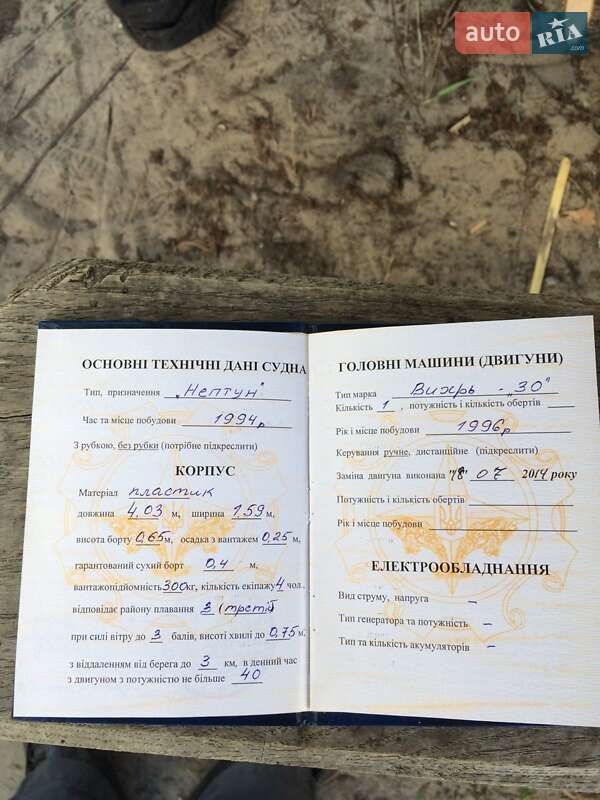 auto RIA.com
ОСНОВНІ ТЕХНІЧНІ ДАНІ СУДНА
Тип, призначення „Нептун"
Час та місце побудови 1994р
З рубкою, без рубки (потрібне підкреслити)
КОРПУС
Матеріал пластик
довжина 4,03 м, ширина 1,59 м,
висота борту 0,65 м, осадка з вантажем 0,25 м,
гарантований сухий борт 0,4 м,
вантажопідйомність 300 кг, кількість екіпажу 4 чол.,
відповідає району плавання 3 (третій
при силі вітру до 3 балів, висоті хвилі до 0,75 м.
з віддаленням від берега до 3 км, в денний час
з двигуном з потужністю не більше 40
ГОЛОВНІ МАШИНИ (ДВИГУНИ)
Тип марка Вихрь - „30"
Кількість 1 , потужність і кількість обертів
Рік і місце побудови 1996р
Керування ручне, дистанційне (підкреслити)
Заміна двигуна виконана "18" 07 2014 року
Потужність і кількість обертів
Рік і місце побудови
ЕЛЕКТРООБЛАДНАННЯ
Вид струму, напруга –
Тип генератора та потужність –
Тип та кількість акумуляторів –